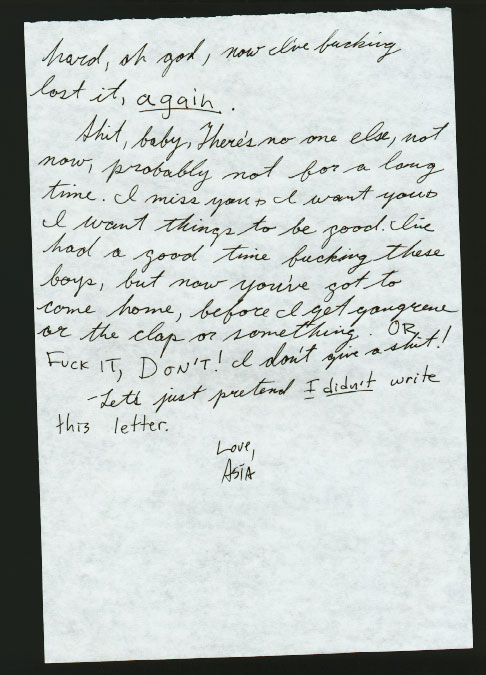 hard, oh god, now I've fucking
lost it, again.
Shit, baby, There's no one else, not
now, probably not for a long
time. I miss you, I want you,
I want things to be good. I've
had a good time fucking these
boys, but now you've got to
come home, before I get gangrene
or the clap or something. OR
FUCK IT, DON'T! I don't give a shit!
-Let's just pretend I didn't write
this letter.
Love,
ASIA